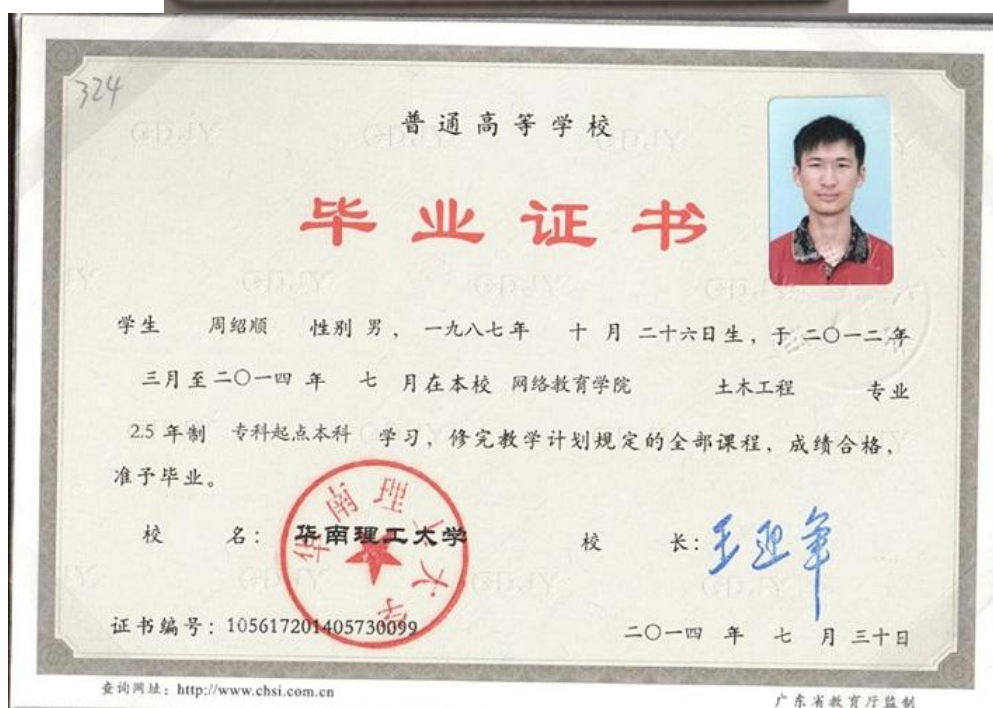 324
普通高等学校
毕业证书
学生 周绍顺 性别 男，一九八七年 十 月 二十六日生，于 二〇一二年
三月至二〇一四 年 七 月在本校 网络教育学院 土木工程 专业
2.5 年制 专科起点本科 学习，修完教学计划规定的全部课程，成绩合格，
准予毕业。
校 名：华南理工大学 校 长：王迎军
华南理工大学
证书编号：105617201405730099 二〇一四 年 七 月 三十日
查询网址：http://www.chsi.com.cn 广东省教育厅监制
GDJY